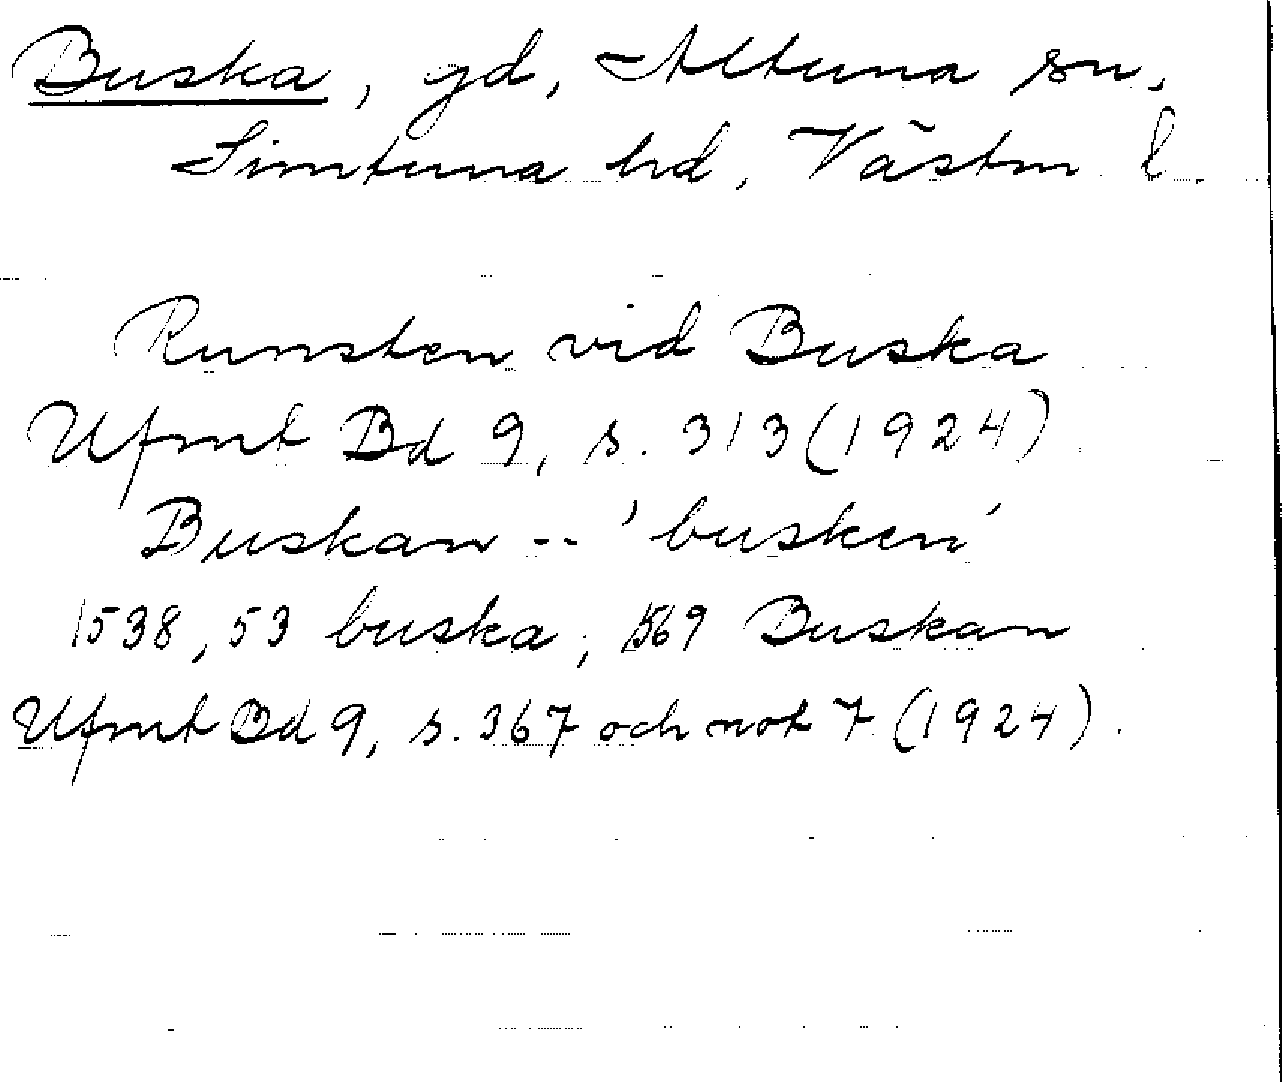 Buska, gd, Altuna sn,
Simtuna hd, Västm l
Runsten vid Buska
Ufmt Bd 9, s. 313 (1924)
Buskan -- 'busken'
1538, 53 buska; 1569 Buskan
Ufmt Bd 9, s. 367 och not 7 (1924).